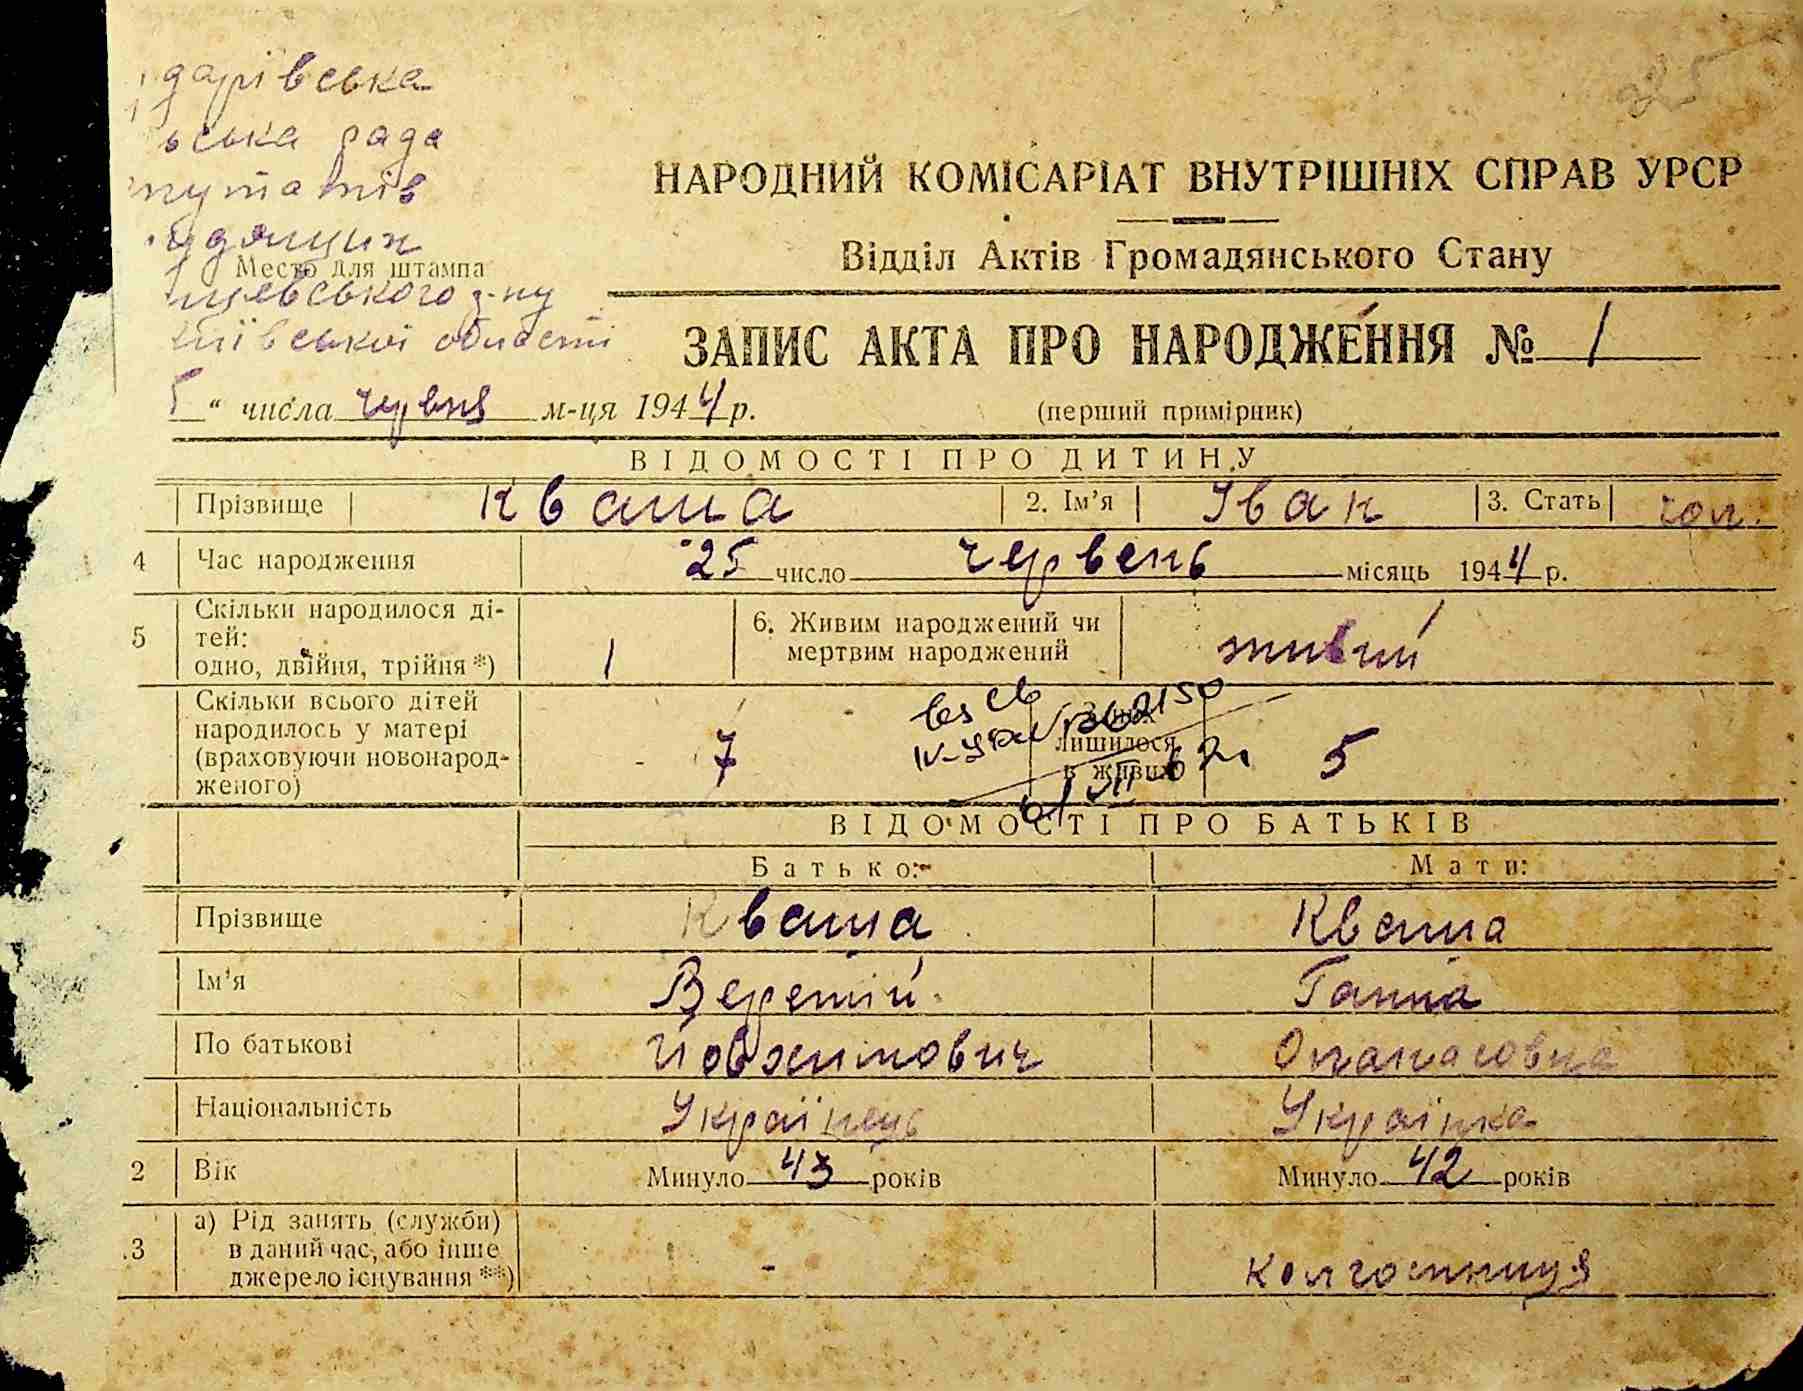 25
дарівська
ська рада
путатів
удящих
Место для штампа
щевського р-ну
Київської області
НАРОДНИЙ КОМІСАРІАТ ВНУТРІШНІХ СПРАВ УРСР
Відділ Актів Громадянського Стану
ЗАПИС АКТА ПРО НАРОДЖЕННЯ № 1
5 " числа червня м-ця 1944 р.
(перший примірник)
ВІДОМОСТІ ПРО ДИТИНУ
Прізвище Кваша 2. Ім'я Іван 3. Стать чол.
4 Час народження 25 число червень місяць 1944 р.
5 Скільки народилося ді-
тей:
одно, двійня, трійня *) 1
6. Живим народжений чи
мертвим народжений живий
Скільки всього дітей
народилось у матері
(враховуючи новонарод-
женого) 7
З них
лишилося
в живих 5
ВІДОМОСТІ ПРО БАТЬКІВ
Батько: Мати:
Прізвище Кваша Кваша
Ім'я Веремій Ганна
По батькові Йовхимович Опанасовна
Національність Українець Українка
2 Вік Минуло 43 років Минуло 42 років
3 а) Рід занять (служби)
в даний час, або інше
джерело існування **) - колгоспниця